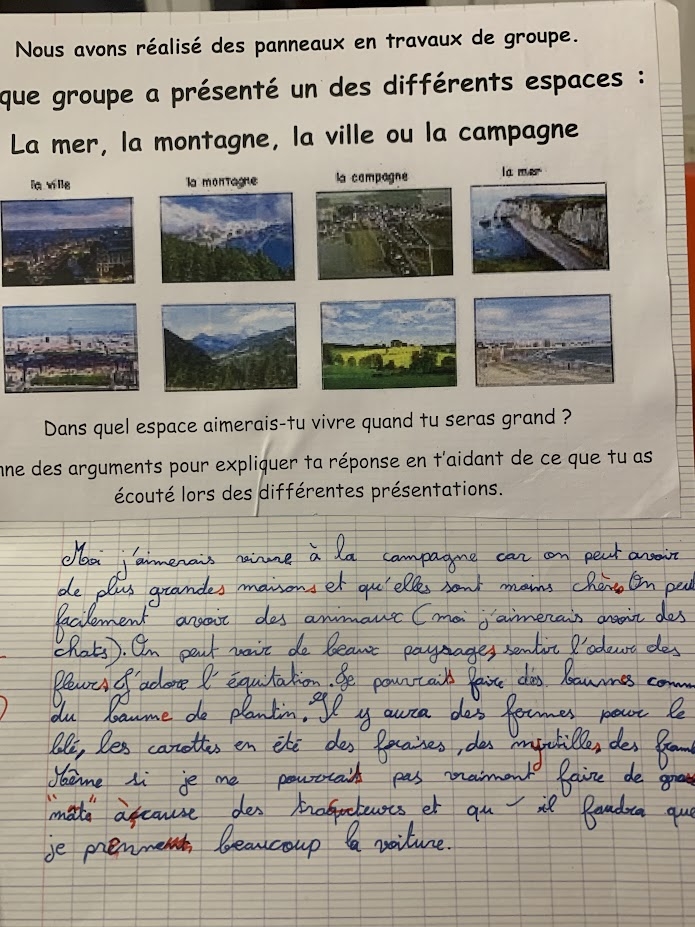 Nous avons réalisé des panneaux en travaux de groupe.
que groupe a présenté un des différents espaces :
La mer, la montagne, la ville ou la campagne
la ville la montagne la campagne la mer
Dans quel espace aimerais-tu vivre quand tu seras grand ?
nne des arguments pour expliquer ta réponse en t'aidant de ce que tu as
écouté lors des différentes présentations.
Moi j'aimerais vivre à la campagne car on peut avoir
de plus grandes maisons et qu'elles sont moins chères. On peu
facilement avoir des animaux (moi j'aimerais avoir des
chats). On peut voir de beaux paysages, sentir l'odeur des
fleurs. J'adore l'équitation. Je pourrais faire des baumes comm
du baume de plantin. Il y aura des fermes pour le
blé, les carottes en été des fraises, des myrtilles, des framb
Même si je ne pourrais pas vraiment faire de
à cause des tracteurs et qu'il faudra que
je prenne beaucoup la voiture.